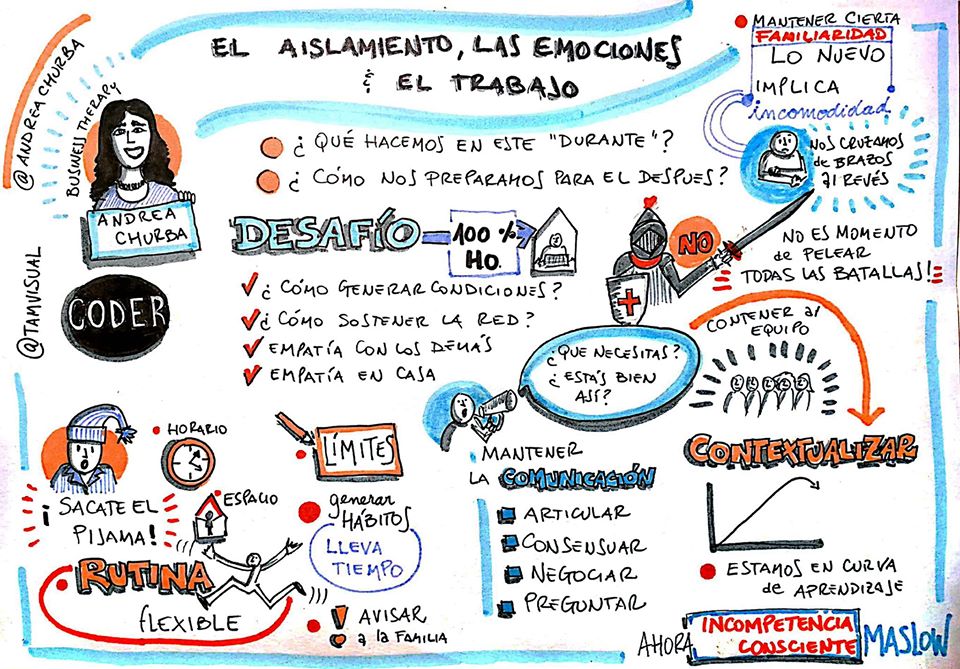 EL AISLAMIENTO, LAS EMOCIONES
& EL TRABAJO
@ANDREA CHURBA
BUSINESS THERAPY
ANDREA
CHURBA
@TAMVISUAL
CODER
¿QUÉ HACEMOS EN ESTE "DURANTE"?
¿CÓMO NOS PREPARAMOS PARA EL DESPUES?
MANTENER CIERTA
FAMILIARIDAD
LO NUEVO
IMPLICA
incomodidad
NOS CRUZAMOS
de BRAZOS
Al REVÉS
DESAFÍO
100%
H.O.
¿CÓMO GENERAR CONDICIONES?
¿CÓMO SOSTENER LA RED?
EMPATÍA CON LOS DEMÁS
EMPATÍA EN CASA
NO
NO ES MOMENTO
de PELEAR
TODAS LAS BATALLAS!
¿QUE NECESITAS?
¿ESTÁS BIEN
ASÍ?
CONTENER al
EQUIPO
CONTEXTUALIZAR
ESTAMOS EN CURVA
de APRENDIZAJE
AHORA
INCOMPETENCIA
CONSCIENTE
MASLOW
MANTENER
LA COMUNICACIÓN
ARTICULAR
CONSENSUAR
NEGOCIAR
PREGUNTAR
HORARIO
LÍMITES
¡SACATE EL
PIJAMA!
ESPACIO
generar
HÁBITOS
LLEVA
TIEMPO
RUTINA
flEXIBLE
AVISAR
a la FAMILIA